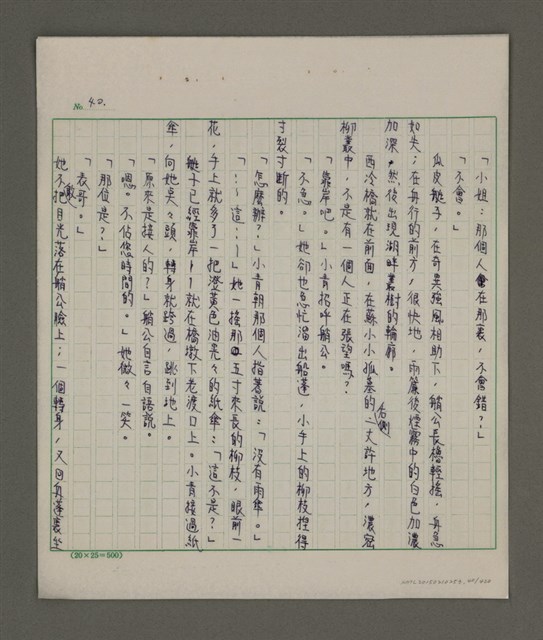 No. 40.
「小姐：那個人在那裏，不會錯？」
「不會。」
瓜皮艇子，在奇異強風相助下，艄公長櫓輕搖，舟急
如矢；在舟行的前方，很快地，雨簾後煙霧中的白色加濃
加深，然後出現湖畔叢樹的輪廓。
西泠橋就在前面，在蘇小小孤墓的右側二丈許地方，濃密
柳叢中，不是有一個人正在張望嗎？
「靠岸吧。」小青招呼艄公。
「不急。」她卻也急忙溜出船蓬，小手上的柳枝捏得
寸裂寸斷的。
「怎麼辦？」小青朝那個人指著說：「沒有雨傘。」
「！這！」她一搖那五寸來長的柳枝，眼前一
花，手上就多了一把澄黃色油亮々的紙傘：「這不是？」
艇子已經靠岸——就在橋墩下老渡口上。小青接過紙
傘，向她吳々頭，轉身就跨過，跳到地上。
「原來是接人的？」艄公自言自語說。
「嗯。不佔您時間的。」她微々一笑。
「那位是？」
「表哥。」
她不敢把目光落在艄公臉上；一個轉身，又回舟蓬裏坐
(20×25=500)